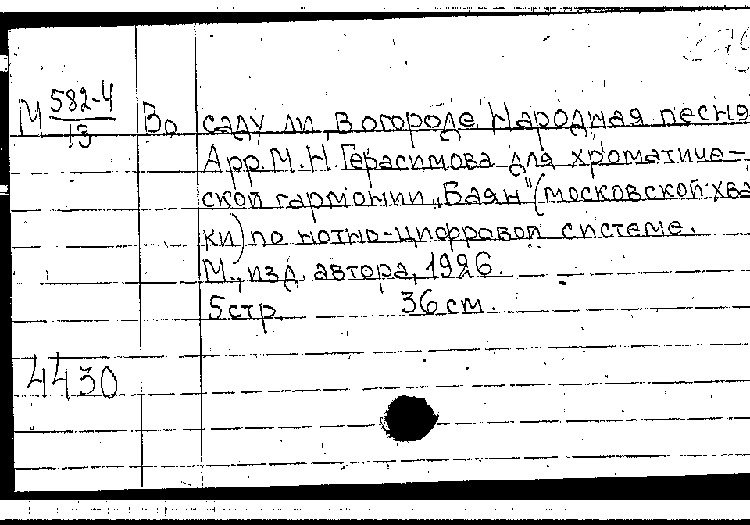 М 582-4/13 Во саду ли, в огороде Народная песня
Арр. М.Н. Герасимова для хроматиче-
ской гармонии „Баян" (московской хва
ки) по нотно-цифровой системе.
М., изд. автора, 1926.
5 стр. 36 см.
4430